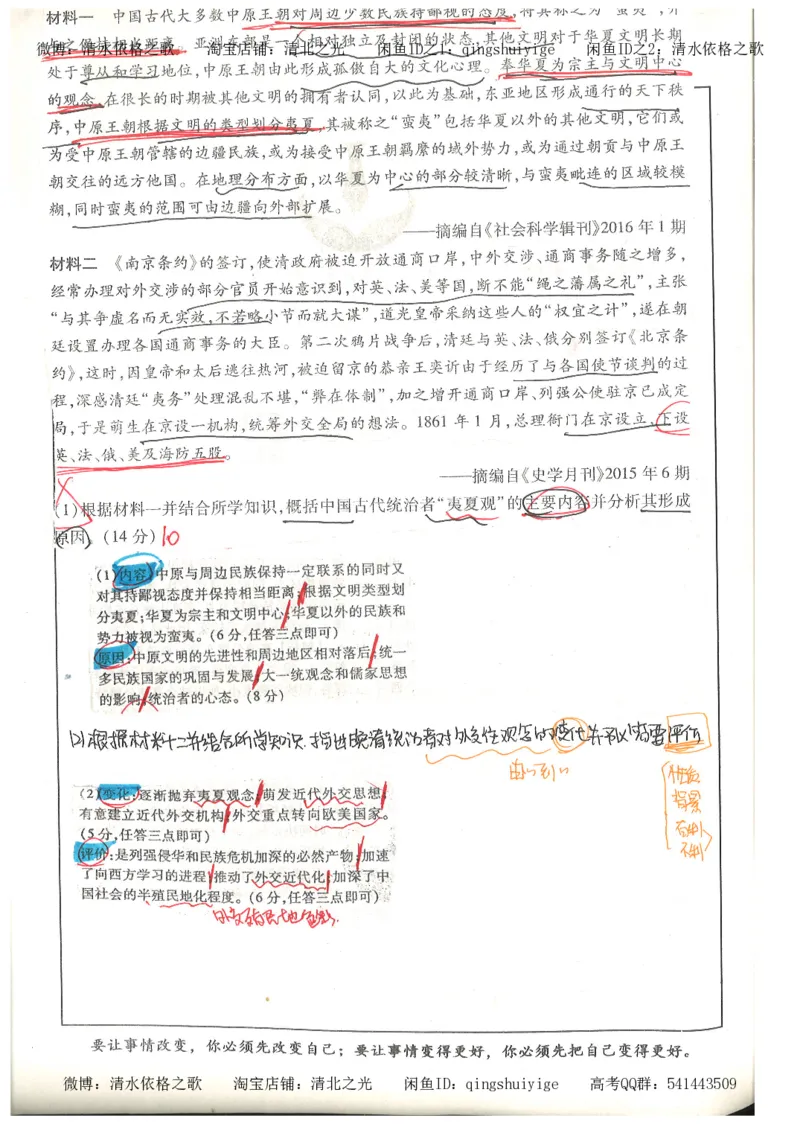 材料一 中国古代大多数中原王朝对周边少数民族持鄙视的态度,将其称之为“蛮夷”,并
与之保持相当距离。亚洲东部是一个相对独立及封闭的状态,其他文明对于华夏文明长期
微博:清水依格之歌 淘宝店铺:清北之光 闲鱼ID之1:qingshuiyige 闲鱼ID之2:清水依格之歌
处于尊从和学习地位,中原王朝由此形成孤傲自大的文化心理。奉华夏为宗主与文明中心
的观念,在很长的时期被其他文明的拥有者认同,以此为基础,东亚地区形成通行的天下秩
序,中原王朝根据文明的类型划分夷夏,其被称之“蛮夷”包括华夏以外的其他文明,它们或
为受中原王朝管辖的边疆民族,或为接受中原王朝羁縻的域外势力,或为通过朝贡与中原王
朝交往的远方他国。在地理分布方面,以华夏为中心的部分较清晰,与蛮夷毗连的区域较模
糊,同时蛮夷的范围可由边疆向外部扩展。
——摘编自《社会科学辑刊》2016年1期
材料二 《南京条约》的签订,使清政府被迫开放通商口岸,中外交涉、通商事务随之增多,
经常办理对外交涉的部分官员开始意识到,对英、法、美等国,断不能“绳之藩属之礼”,主张
“与其争虚名而无实效,不若略小节而就大谋”,道光皇帝采纳这些人的“权宜之计”,遂在朝
廷设置办理各国通商事务的大臣。第二次鸦片战争后,清廷与英、法、俄分别签订《北京条
约》,这时,因皇帝和太后逃往热河,被迫留京的恭亲王奕䜣由于经历了与各国使节谈判的过
程,深感清廷“夷务”处理混乱不堪,“弊在体制”,加之增开通商口岸、列强公使驻京已成定
局,于是萌生在京设一机构,统筹外交全局的想法。1861年1月,总理衙门在京设立,下设
英、法、俄、美及海防五股。
——摘编自《史学月刊》2015年6期
(1)根据材料一并结合所学知识,概括中国古代统治者“夷夏观”的主要内容并分析其形成
原因。(14分) 10
(1)内容:中原与周边民族保持一定联系的同时又
对其持鄙视态度并保持相当距离;根据文明类型划
分夷夏;华夏为宗主和文明中心;华夏以外的民族和
势力被视为蛮夷。(6分,任答三点即可)
原因:中原文明的先进性和周边地区相对落后;统一
多民族国家的巩固与发展;大一统观念和儒家思想
的影响;统治者的心态。(8分)
(2)根据材料十二并结合所学知识,指出晚清统治者对外交往观念的变化并予以简要评价
由“”到“”
性质
背景
有利
不利
(2)变化:逐渐抛弃夷夏观念;萌发近代外交思想;
有意建立近代外交机构;外交重点转向欧美国家。
(5分,任答三点即可)
评价:是列强侵华和民族危机加深的必然产物;加速
了向西方学习的进程;推动了外交近代化;加深了中
国社会的半殖民地化程度。(6分,任答三点即可)
要让事情改变,你必须先改变自己;要让事情变得更好,你必须先把自己变得更好。
微博:清水依格之歌 淘宝店铺:清北之光 闲鱼ID:qingshuiyige 高考QQ群:541443509